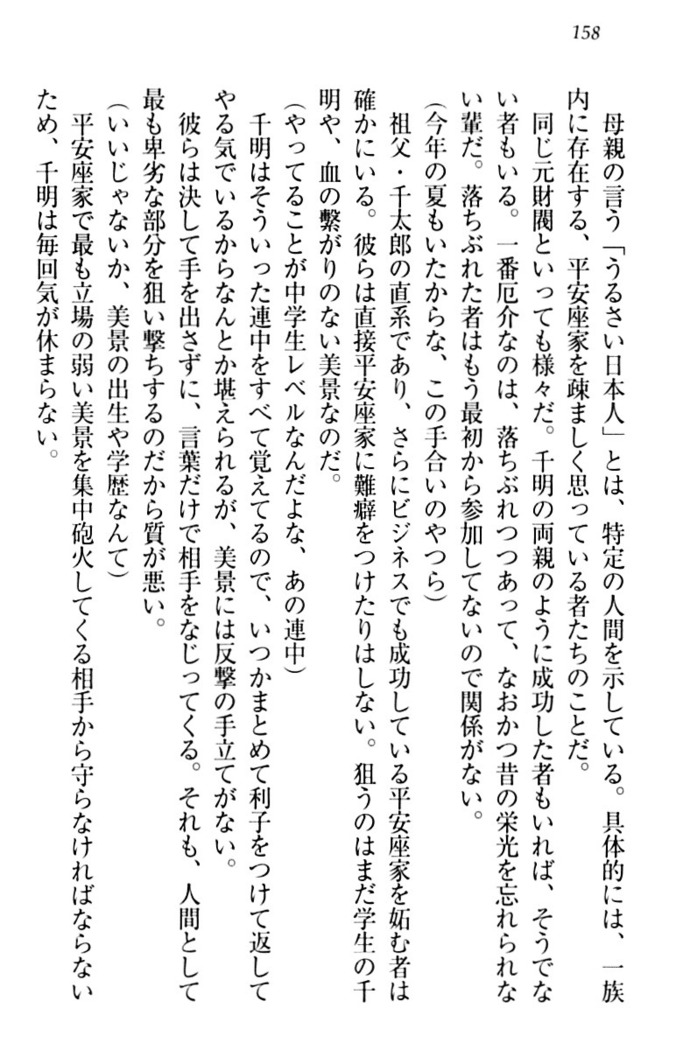 158
母親の言う「うるさい日本人」とは、特定の人間を示している。具体的には、一族
内に存在する、平安座家を疎ましく思っている者たちのことだ。
同じ元財閥といっても様々だ。千明の両親のように成功した者もいれば、そうでな
い者もいる。一番厄介なのは、落ちぶれつつあって、なおかつ昔の栄光を忘れられな
い輩だ。落ちぶれた者はもう最初から参加してないので関係がない。
（今年の夏もいたからな、この手合いのやつら）
祖父・千太郎の直系であり、さらにビジネスでも成功している平安座家を妬む者は
確かにいる。彼らは直接平安座家に難癖をつけたりはしない。狙うのはまだ学生の千
明や、血の繋がりのない美景なのだ。
（やってることが中学生レベルなんだよな、あの連中）
千明はそういった連中をすべて覚えてるので、いつかまとめて利子をつけて返して
やる気でいるからなんとか堪えられるが、美景には反撃の手立てがない。
彼らは決して手を出さずに、言葉だけで相手をなじってくる。それも、人間として
最も卑劣な部分を狙い撃ちするのだから質が悪い。
（いいじゃないか、美景の出生や学歴なんて）
平安座家で最も立場の弱い美景を集中砲火してくる相手から守らなければならない
ため、千明は毎回気が休まらない。